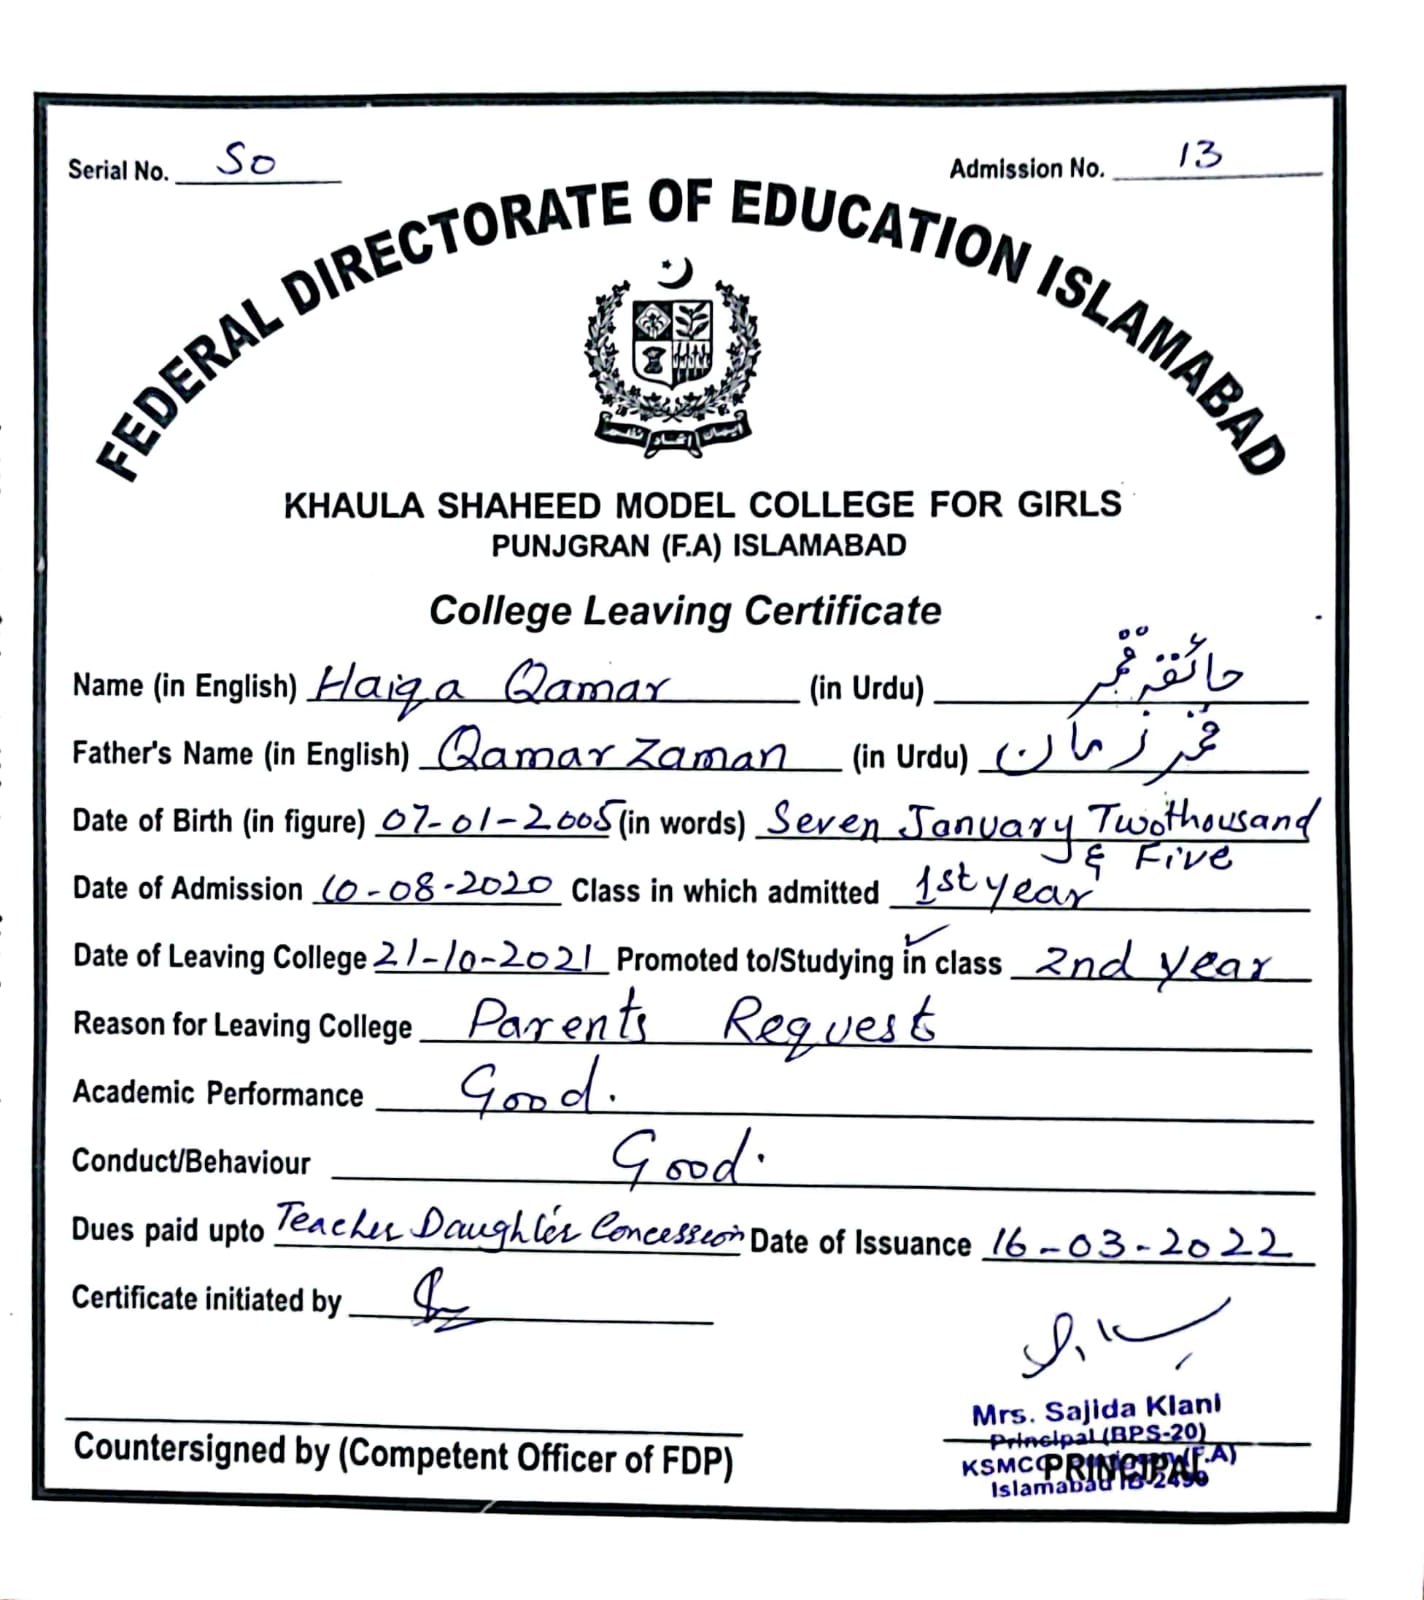 Serial No. 50 Admission No. 13
FEDERAL DIRECTORATE OF EDUCATION ISLAMABAD
ایمان اتحاد نظم
KHAULA SHAHEED MODEL COLLEGE FOR GIRLS
PUNJGRAN (F.A) ISLAMABAD
College Leaving Certificate
Name (in English) Haiqa Qamar (in Urdu) حائقہ قمر
Father's Name (in English) Qamar Zaman (in Urdu) قمر زمان
Date of Birth (in figure) 07-01-2005 (in words) Seven January Two thousand
& Five
Date of Admission 10-08-2020 Class in which admitted 1st year
Date of Leaving College 21-10-2021 Promoted to/Studying in class 2nd year
Reason for Leaving College Parents Request
Academic Performance Good.
Conduct/Behaviour Good.
Dues paid upto Teacher Daughter Concession Date of Issuance 16-03-2022
Certificate initiated by
Mrs. Sajida Kiani
Principal (BPS-20)
KSMCG (F.A)
PRINCIPAL
Islamabad IB-2490
Countersigned by (Competent Officer of FDP)